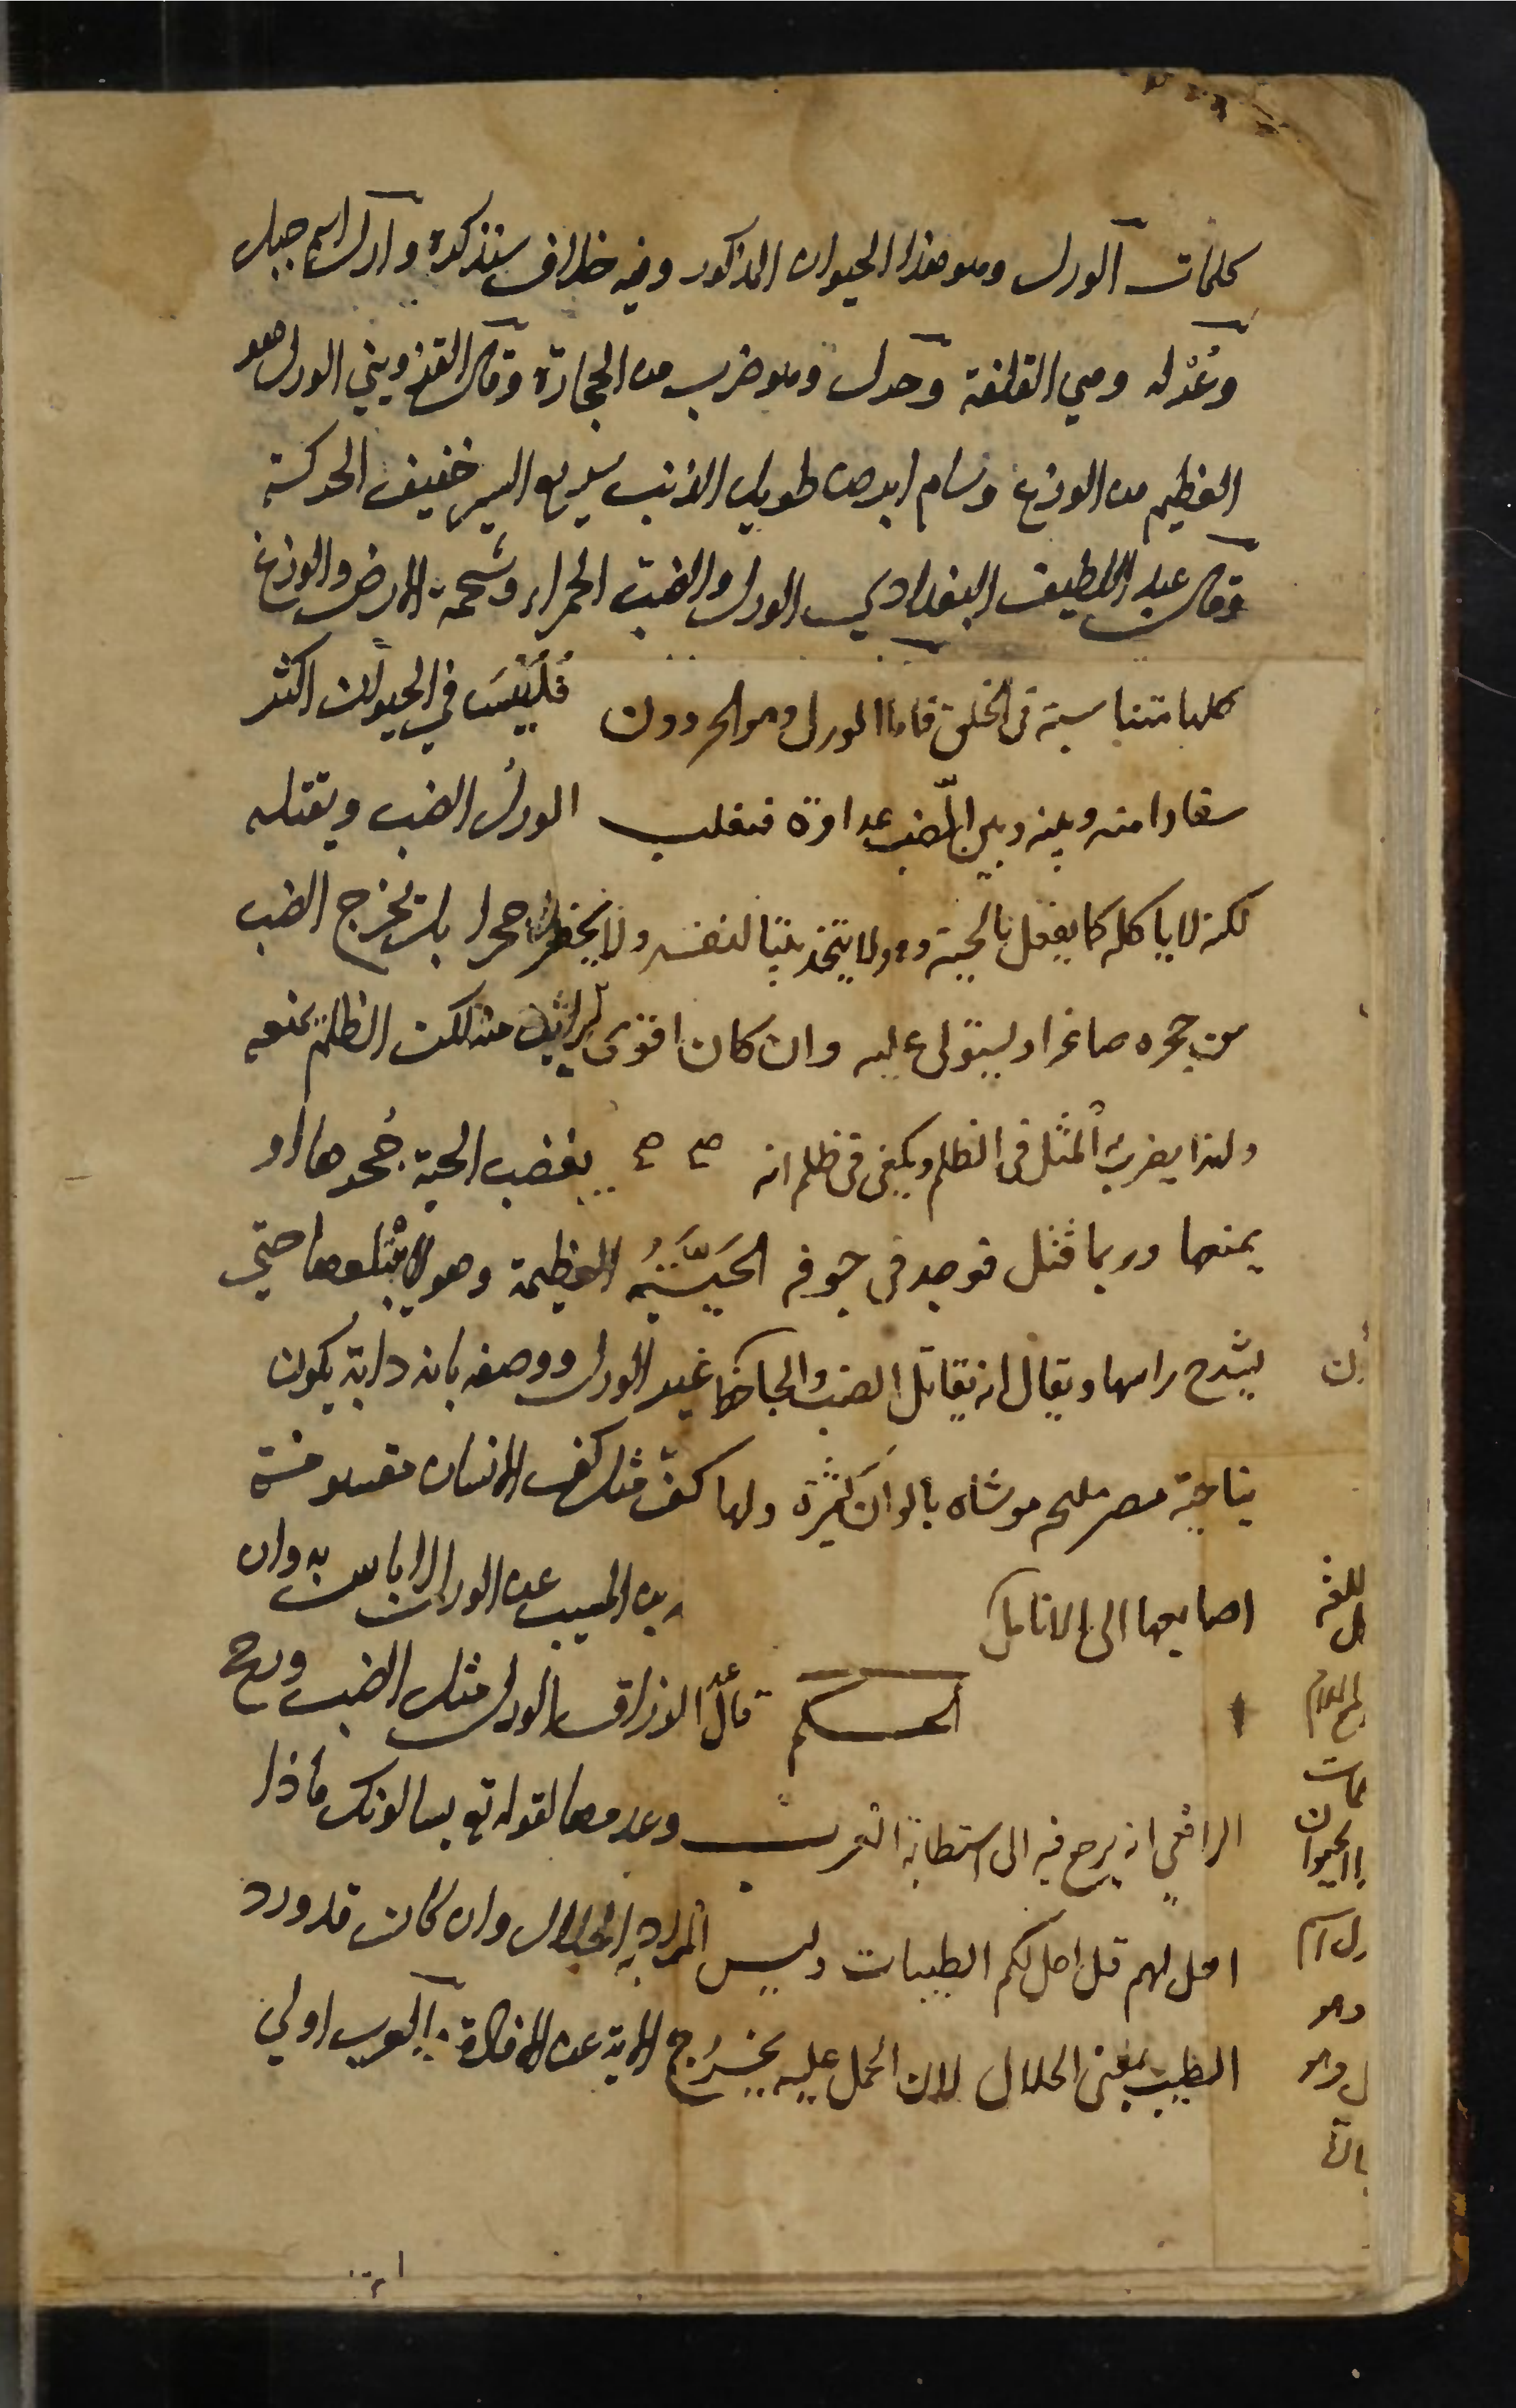 كلمات الورل وهو هذا الحيوان المذكور وفيه خلاف سنذكره وارل اسم جبل
وغرله وهي القلفة وحرل وهو ضرب من الحجارة وقال القزويني الورل هو
العظيم من الوزغ وسام ابرص طويل الذنب سريع السير خفيف الحركة
وقال عبد اللطيف البغدادي الورل والضب الحرباء وشحمة الارض والوزغ
كلها متناسبة في الخلق فاما الورل وهو الحرذون فليس في الحيوان اكثر
سفادا منه وبينه وبين الضب عداوة فيغلب الورل الضب ويقتله
لكنه لا ياكله كما يفعل بالحية وهو لا يتخذ بيتا لنفسه ولا يحفر جحرا بل يخرج الضب
من جحره صاغرا ويستولي عليه وان كان اقوى براثن منه لكن الظلم يمنعه
ولهذا يضرب المثل في الظلم ويكفي في ظلمه انه يغصب الحية جحرها او
يمنعها وربما قتل فوجد في جوفه الحية العظيمة وهو لا يبتلعها حتى
يشدح راسها ويقال انه يقاتل الضب والجاحظ غير الورل ووصفه بانه دابة يكون
بناحية مصر مليح موشاه بالوان كثيرة ولها كف مثل كف الانسان مقسومة
اصابعها الى الانامل بن المسيب عن الورل لا باس به وان
الحكم قال عبد الرزاق الورل مثل الضب ورجح
الرافعي انه يرجع فيه الى استطابة العرب وعدمها لقوله تع يسالونك ماذا
احل لهم قل احل لكم الطيبات وليس المراد به الحلال وان كان قد ورد
الطيب بمعنى الحلال لان الحمل عليه يخرج الاية عن الافادة العرب اولي